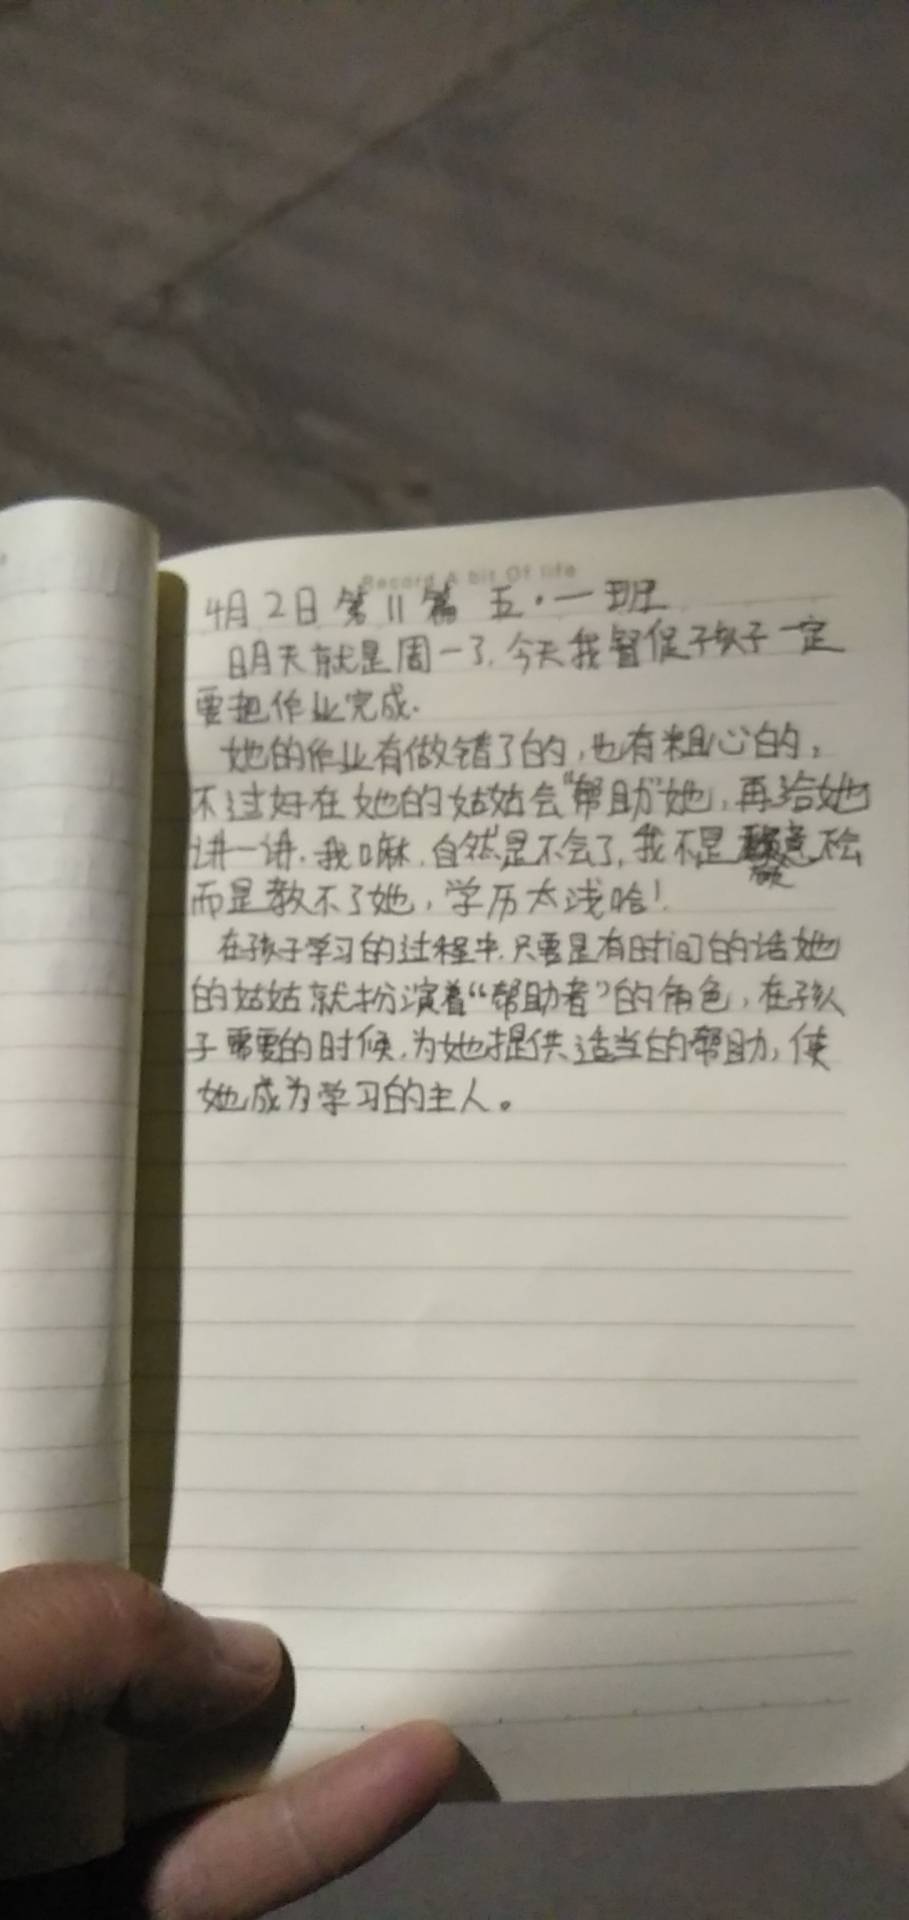 Record A bit Of life
4月2日 第11篇 五·一班
明天就是周一了,今天我督促孩子一定
要把作业完成.
她的作业有做错了的,也有粗心的,
不过好在她的姑姑会“帮助”她,再给她
讲一讲.我嘛,自然是不会了,我不是 意 不会
而是教不了她,学历太浅哈!
在孩子学习的过程中,只要是有时间的话她
的姑姑就扮演着“帮助者”的角色,在孩
子需要的时候,为她提供适当的帮助,使
她成为学习的主人。